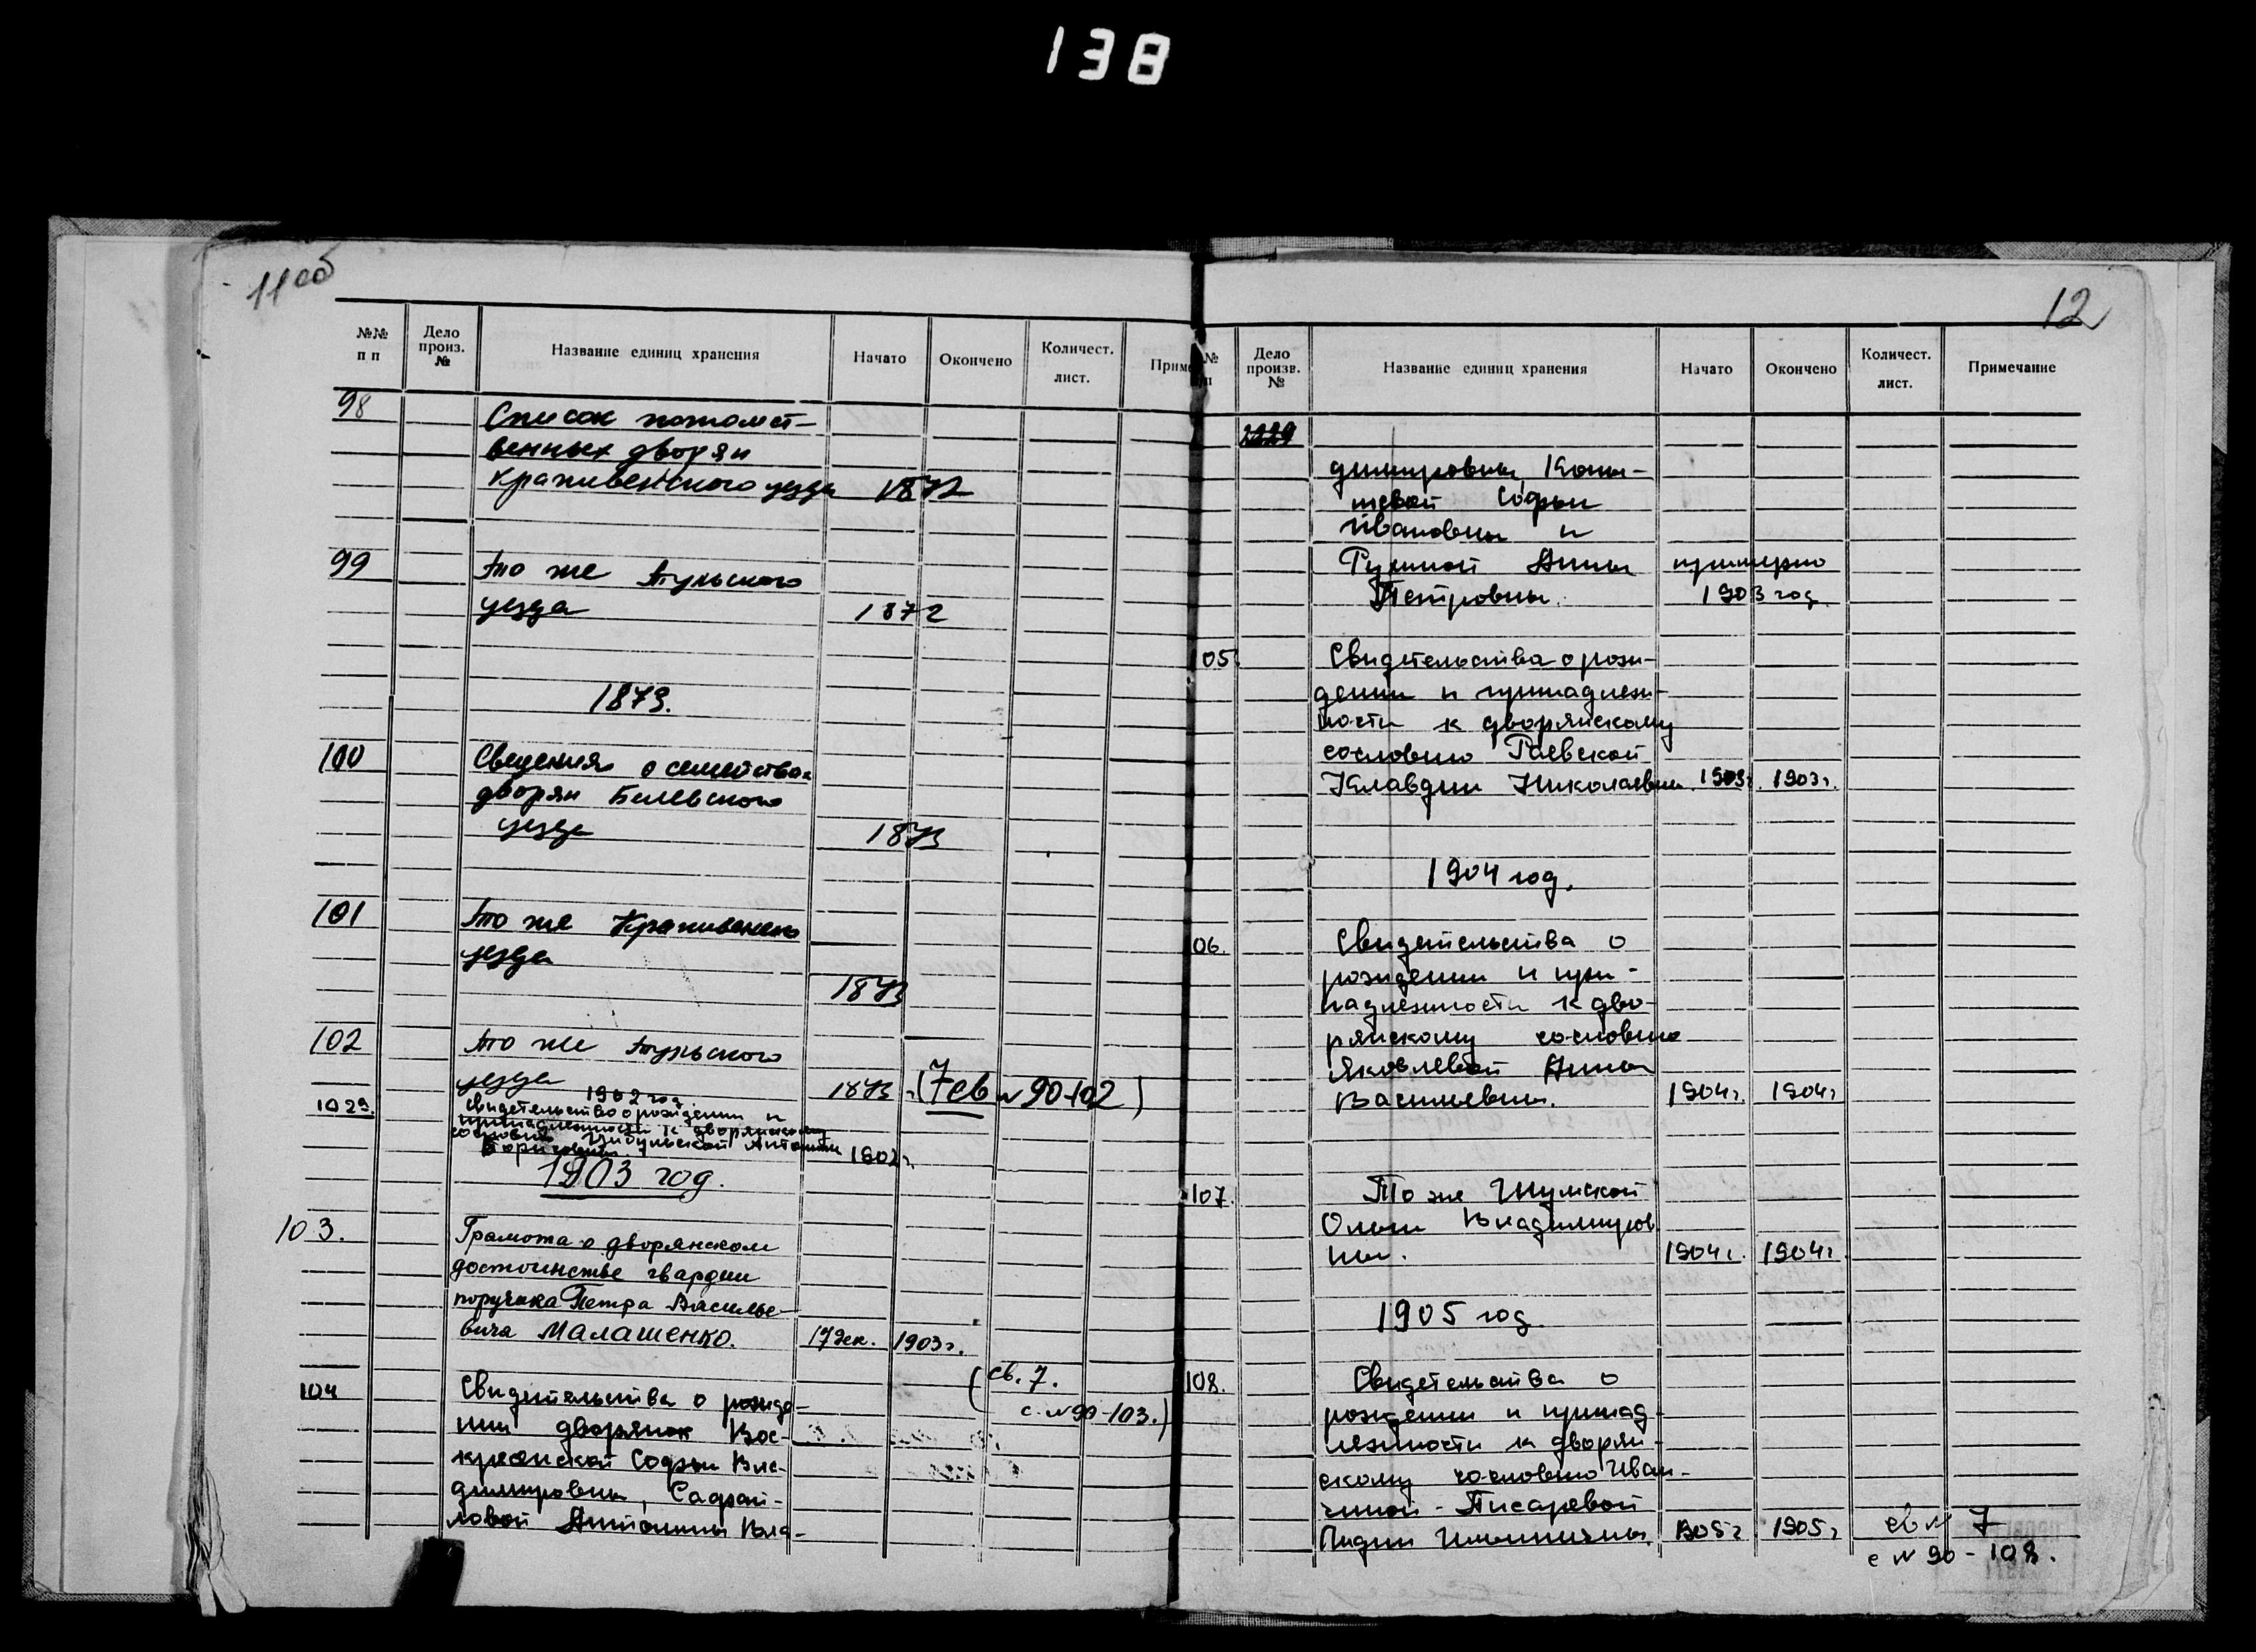 138
11об
№№ п п
Дело произ. №
Название единиц хранения
Начато
Окончено
Количест. лист.
Приме
98
Список потомст-
венных дворян
Крапивенского уезда 1872
99
То же Тульского
уезда 1872
1873.
100
Сведения о семействах
дворян Белевского
уезда 1873
101
То же Крапивенско
уезда
1873
102
То же Тульского
уезда 1873 (7 св №90-102)
1902 год.
102а. Свидетельство о рождении и
принадлежности к дворянскому
сословию Цибульской Антонины
Борисовны. 1902 г.
1903 год.
103. Грамота о дворянском
достоинстве гвардии
поручика Петра Василье-
вича Малашенко. 17 дек. 1903 г.
(св. 7.
с №90-103.)
104 Свидетельства о рожде-
нии дворянок Вос-
кресенской Софьи Вла-
димировны,
Антонины Вла-
12
№ п
Дело произв. №
Название единиц хранения
Начато
Окончено
Количест. лист.
Примечание
димировны, Копы-
тевой Софьи
Ивановны и
Анны примерно
Петровны. 1903 год.
105. Свидетельства о рож-
дении и принадлеж-
ности к дворянскому
сословию Раевской
Клавдии Николаевны. 1903 г. 1903 г.
1904 год.
106. Свидетельства о
рождении и при-
надлежности к дво-
рянскому сословию
Яковлевой Анны
Васильевны. 1904 г. 1904 г.
107. То же Шумской
Ольги Владимиров
ны. 1904 г. 1904 г.
1905 год.
108. Свидетельства о
рождении и принад-
лежности к дворян-
скому сословию Иван-
чиной-Писаревой
Лидии Ильиничны. 1905 г. 1905 г. св № 7
с №90-108.